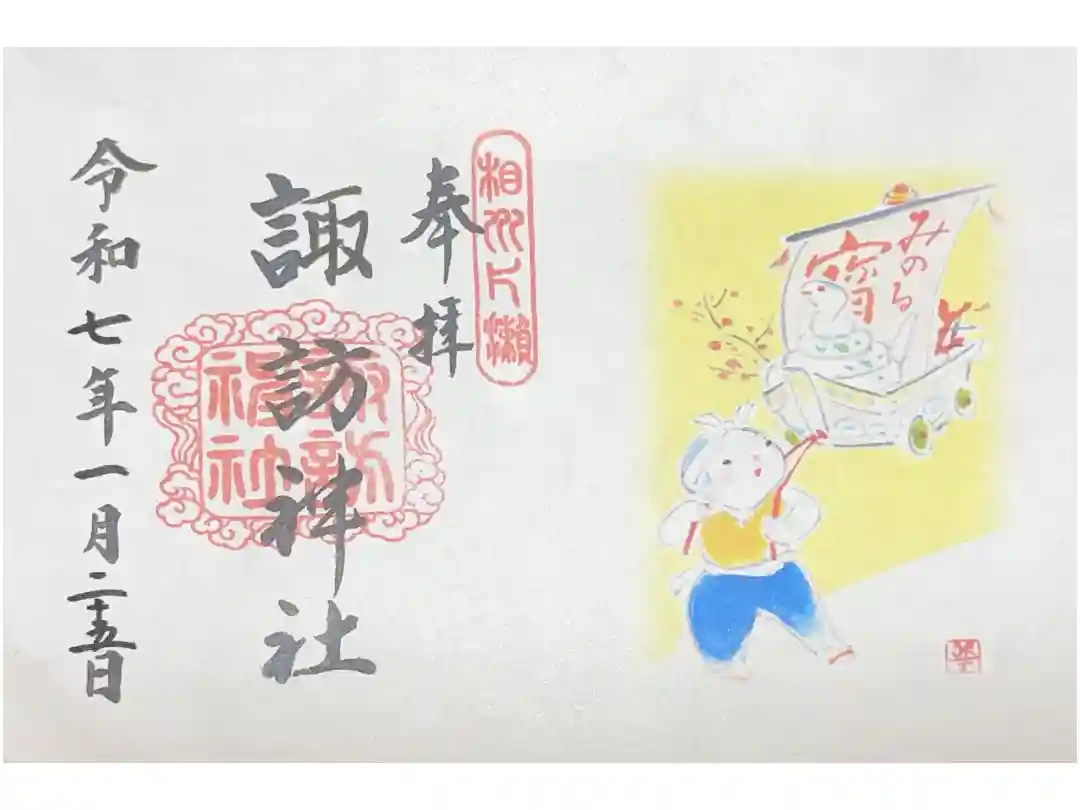 みのる
寶
相州片瀬
奉拝
諏訪神社
諏訪
神社
令和七年一月二十五日